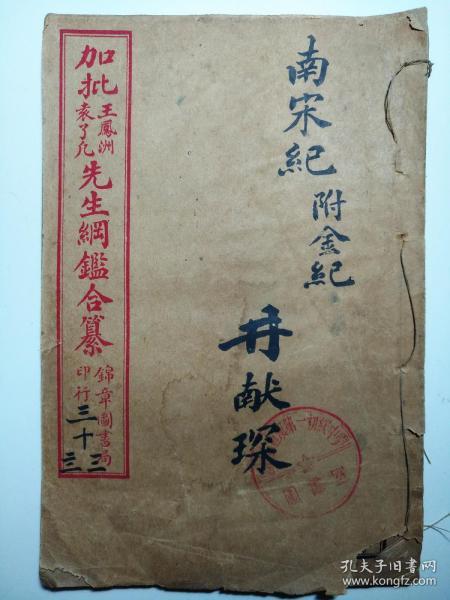 南宋紀
附金紀
井献琛
加批王鳳洲袁了凡先生綱鑑合纂
錦章圖書局印行
三十三
三
孔夫子旧书网
www.kongfz.com